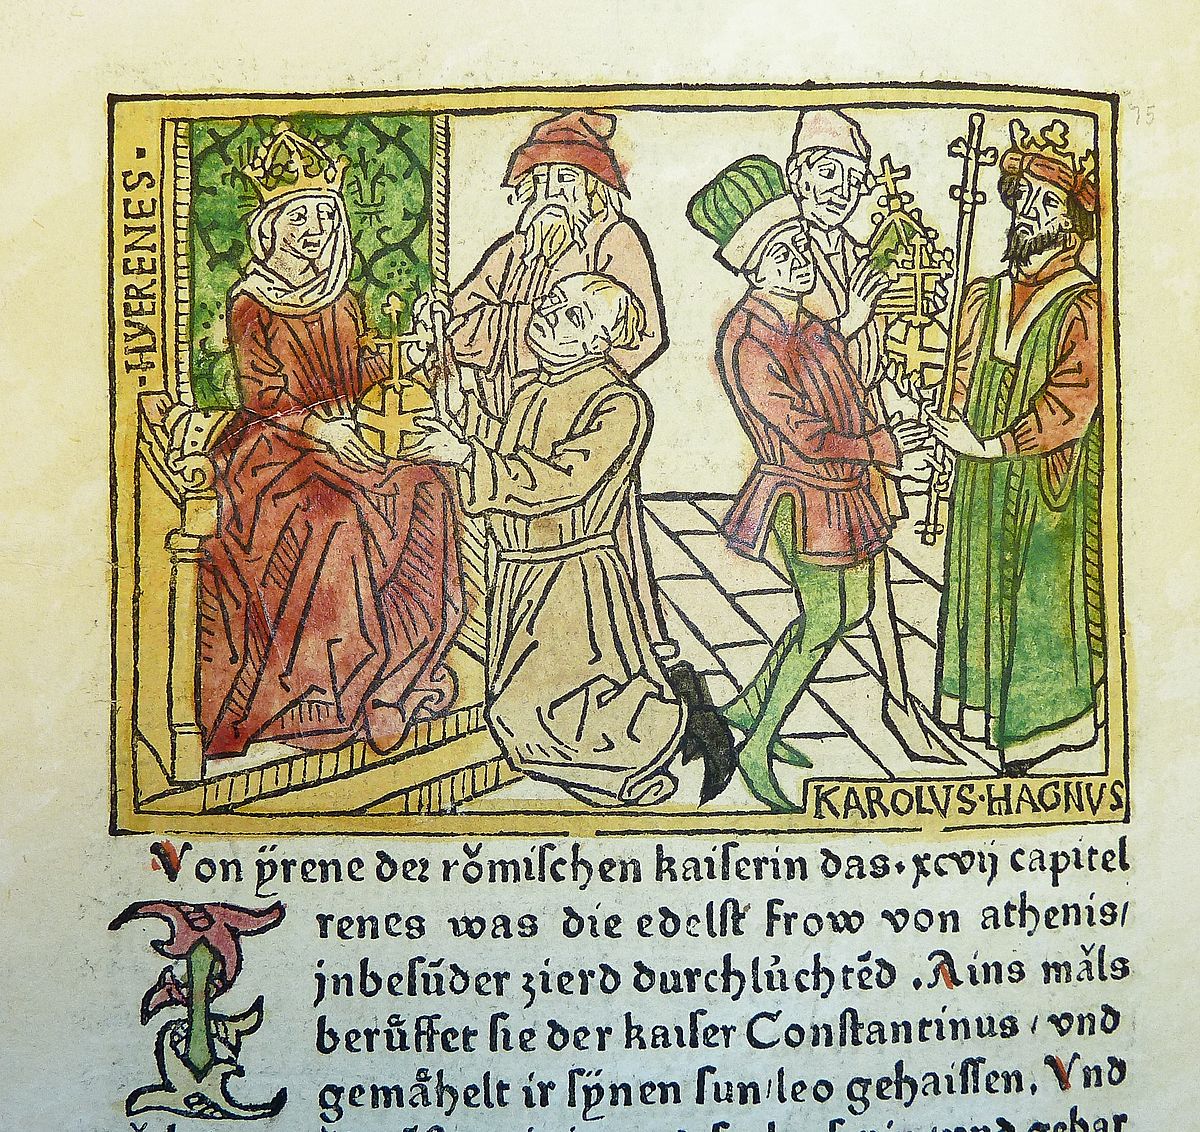 ·HYRENES·
75
KAROLVS·HAGNVS
Von ÿrene der rŏmiſchen kaiſerin das·xcvij capitel
Irenes was die edelſt frow von athenis/
jnbeſūder zierd durchlúchtēd .Ains mǎls
berůffet ſie der kaiſer Conſtantinus / vnd
gemåhelt ir ſÿnen ſun/leo gehaiſſen. Vnd